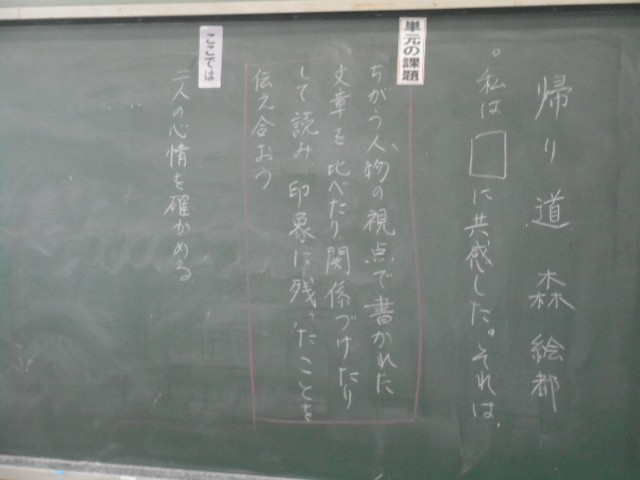 帰り道 森 絵都
。私は□に共感した。それは、
単元の課題
ちがう人物の視点で書かれた
文章を比べたり関係づけたり
して読み、印象に残ったことを
伝え合おう
ここでは
二人の心情を確かめる